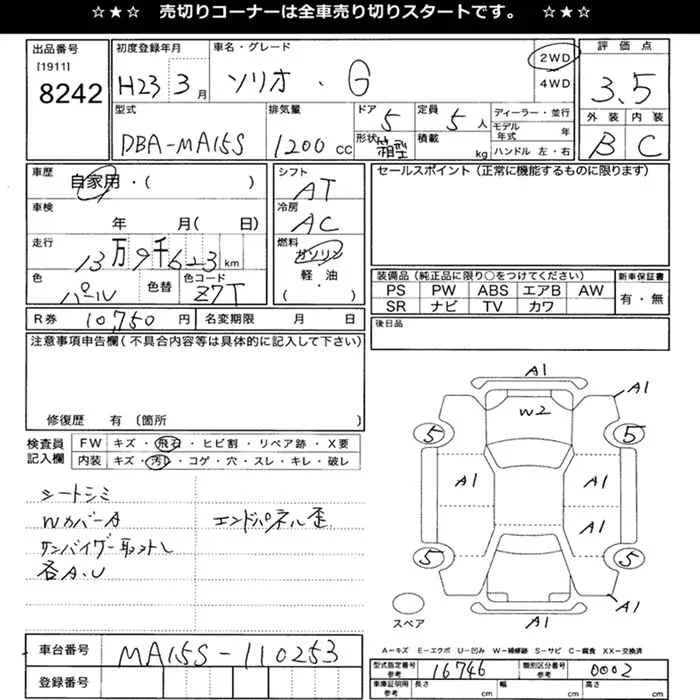 ☆★☆ 売切りコーナーは全車売り切りスタートです。 ☆★☆
出品番号 [1911] 8242
初度登録年月 H23 3月
車名・グレード ソリオ・G
2WD
4WD
評価点 3.5
外装 B 内装 C
型式 DBA-MA15S
排気量 1200 cc
ドア 5 形状 箱型
定員 5人 積載 kg
ディーラー・並行
モデル年式 年
ハンドル 左・右
車歴 自家用・( )
車検 年 月( 日)
走行 13万9千623km
色 パール 色替 色コード Z7T
シフト AT
冷房 AC
燃料 ガソリン
軽・油
( ・ )
セールスポイント(正常に機能するものに限ります)
装備品(純正品に限り○をつけてください)
PS PW ABS エアB AW
SR ナビ TV カワ
新車保証書
有・無
R券 10,750円 名変期限 月 日
後日品
注意事項申告欄(不具合内容等は具体的に記入して下さい)
修復歴 有〔箇所 〕
検査員記入欄
FW キズ・飛石・ヒビ割・リペア跡・X要
内装 キズ・汚レ・コゲ・穴・スレ・キレ・破レ
シートシミ
WカバーA
エンドパネル歪
サンバイザー取フトレ
各A.U
A1
W2
A1 A1
5 5
A1 A1
A1
5 5
A1 A1
スペア
A-キズ E-エクボ U-凹み W-補修跡 S-サビ C-腐食 XX-交換済
車台番号 MA15S-110253
登録番号
型式指定番号参考 16746 類別区分番号参考 0002
車庫証明用参考 長さ cm 幅 cm 高さ cm